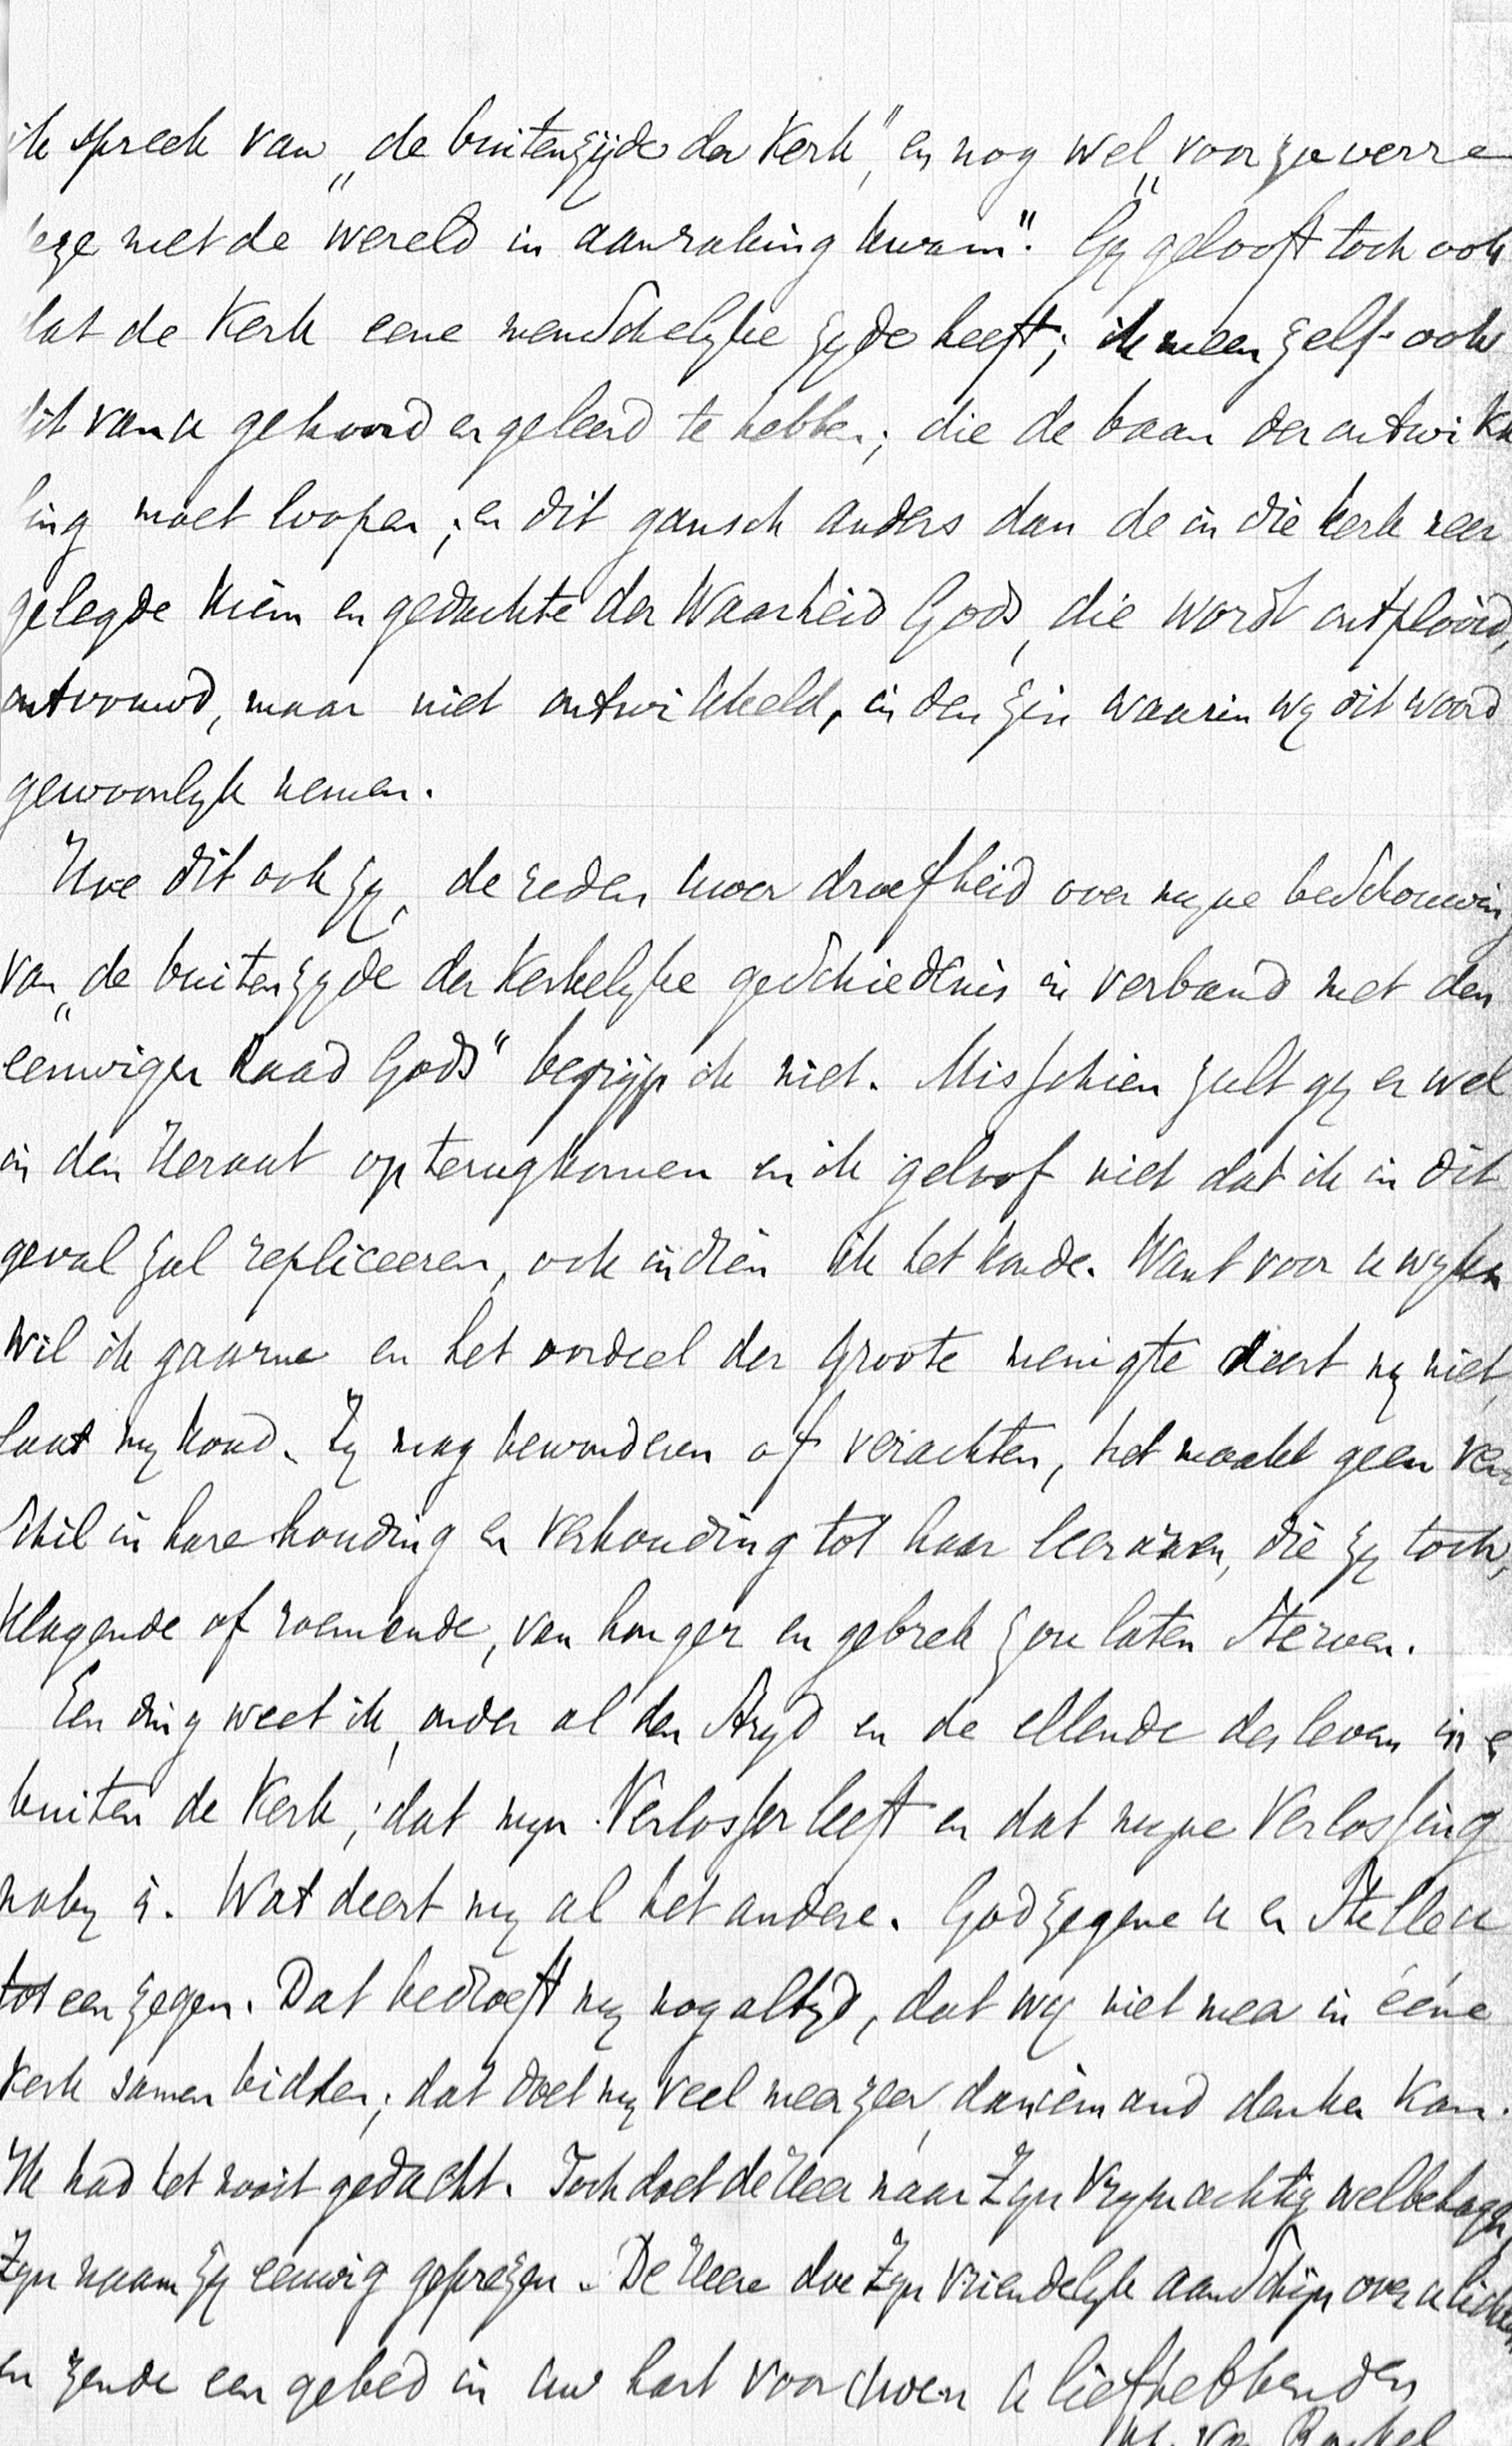 ik spreek van „de buitenzijde der Kerk", en nog wel „voor zooverre
deze met de wereld in aanraking kwam". Gij gelooft toch ook
dat de Kerk eene menschelyke zyde heeft; ik meen zelfs ook
dit van u gehoord en geleerd te hebben; die de baan der ontwikke
ling moet loopen; en dit gansch anders dan de in die kerk neer
gelegde kiem en gedachte der Waarheid Gods, die wordt ontplooid,
ontvouwd, maar niet ontwikkeld, in den zin waarin wy dit woord
gewoonlyk nemen.
Hoe dit ook zy, de reden uwer droefheid over myne beschouwing
van „de buitenzyde der Kerkelyke geschiedenis in verband met den
eeuwigen Raad Gods" begrijp ik niet. Misschien zult gy er wel
in den Heraut op terugkomen en ik geloof niet dat ik in dit
geval zal repliceeren, ook indien ik het konde. Want voor u wyken
wil ik gaarne en het oordeel der groote menigte deert my niet,
laat my koud. Zy mag bewonderen of verachten, het maakt geen ver
schil in hare houding en verhouding tot haar leeraren, die zy toch,
klagende of roemende, van honger en gebrek zou laten sterven.
Een ding weet ik, onder al den stryd en de ellende des levens in en
buiten de Kerk; dat myn Verlosser leeft en dat myne Verlossing
naby is. Wat deert my al het andere. God zegene u en stelle u
tot een zegen. Dat bedroeft my nog altyd, dat wy niet meer in ééne
Kerk samen bidden; dat doet my veel meer zeer, dan iemand denken kan.
Ik had het nooit gedacht. Toch doet de Heer naar Zyn Vrymachtig welbehagen,
Zyn naam zy eeuwig geprezen. De Heere doe Zyn vriendelyk aanschijn over u lichten
en zende een gebed in uw hart voor uwen u liefhebbenden